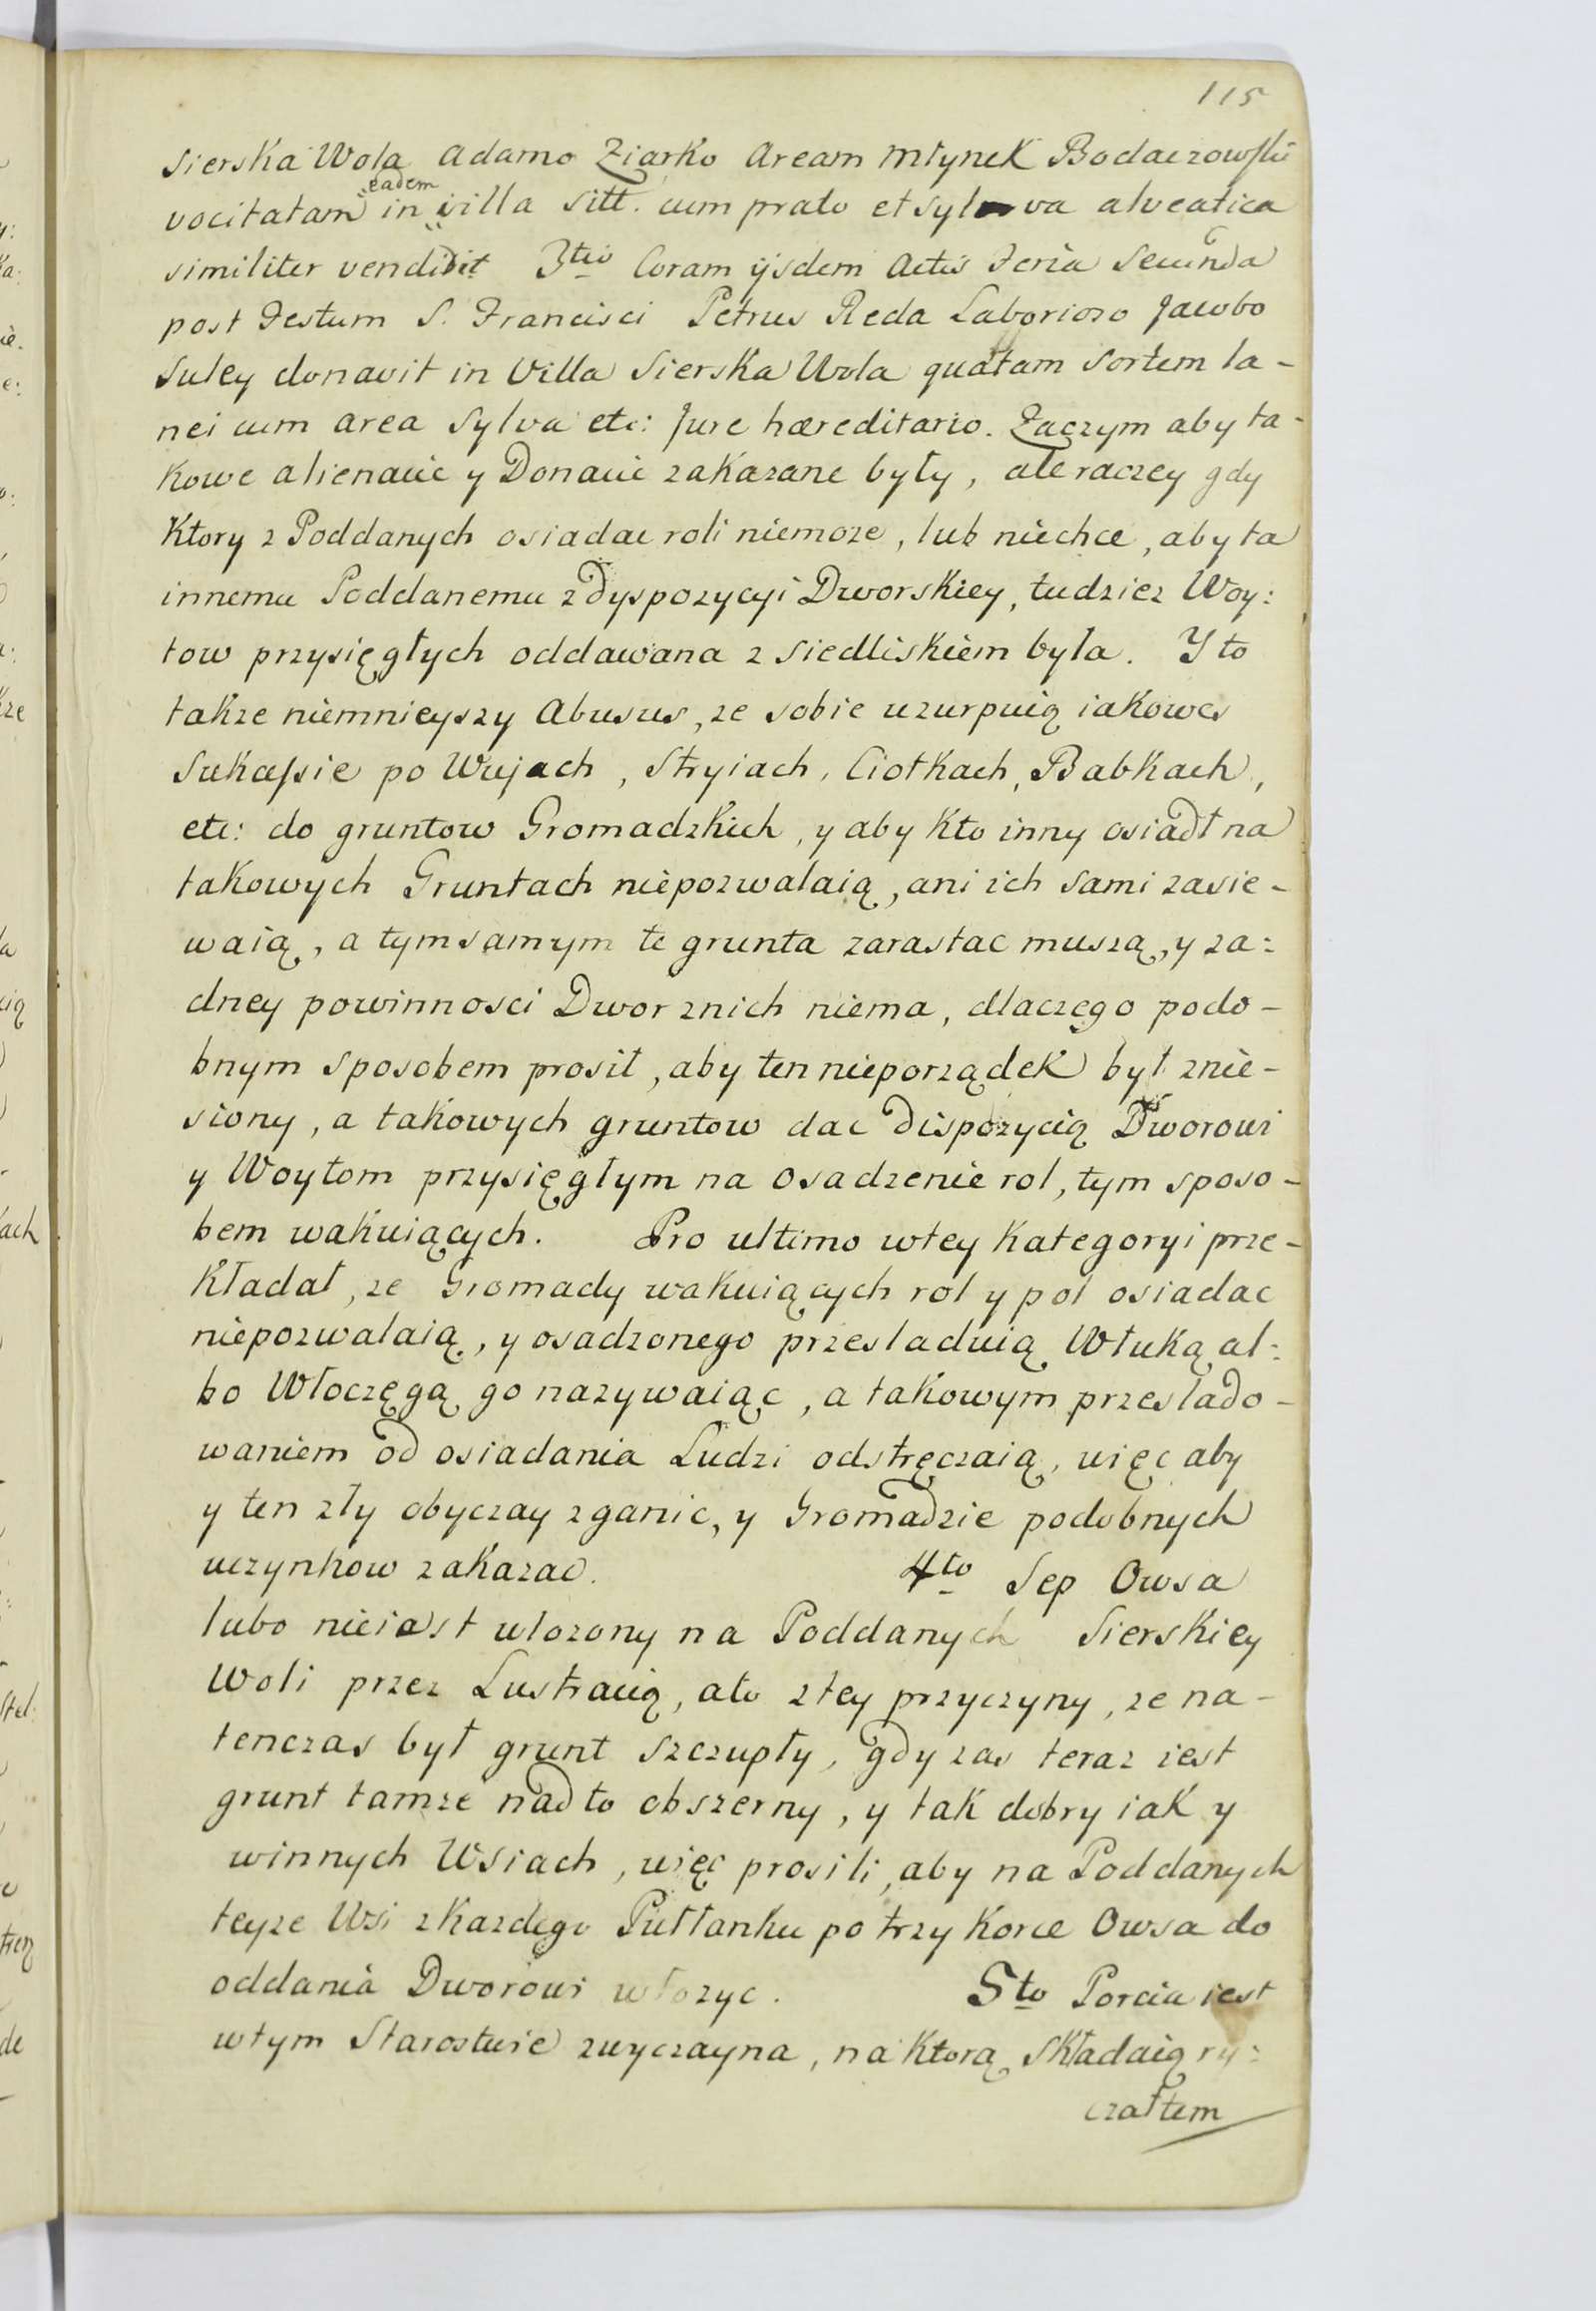 115
Sierska Wola Adamo Ziarko Aream Młynek Bodaczowski
eadem
vocitatam in villa sitt. cum prato et sylva alveatica
similiter vendidit 3tio Coram ijsdem Actis Feria Secunda
post Festum S. Francisci Petrus Reda Laborioso Jacobo
Suley donavit in Villa Sierska Wola quatam Sortem la-
nei cum area Sylva etc: Jure hæreditario. Zaczym aby ta-
kowe alienacie y Donacie zakazane były, ale raczey gdy
Ktory z Poddanych osiadac roli niemoze, lub niechce, aby ta
innemu Poddanemu z dyspozycyi Dworskiey, tudziez Woy:
tow przysięgłych oddawana z siedliskiem byla. Y to
takze niemnieyszy Abusus, ze sobie uzurpuią iakowes
Sukcessie po Wujach, Stryiach, Ciotkach, Babkach,
etc: do gruntow Gromadzkich, y aby kto inny osiadł na
takowych Gruntach niepozwalaią, ani ich sami zasie-
waią, a tym samym te grunta zarastac muszą, y za:
dney powinnosci Dwor znich niema, dlaczego podo-
bnym sposobem prosił, aby ten nieporządek był znie-
siony, a takowych gruntow dac dispozycią Dworowi
y Woytom przysięgłym na osadzenie rol, tym sposo-
bem wakuiących. Pro ultimo wtey kategoryi prze-
kładał, ze Gromady wakuiących rol y pol osiadac
niepozwalaią, y osadzonego przesladuią Włuką al:
bo Włoczęgą go nazywaiąc, a takowym przeslado-
waniem od osiadania Ludzi odstręczaią, więc aby
y ten zły obyczay zganic, y Gromadzie podobnych
uczynkow zakazac. 4to Sep Owsa
lubo nieiest włozony na Poddanych Sierskiey
Woli przez Lustracią, ato ztey przyczyny, ze na-
tenczas był grunt szczupły, gdy zas teraz iest
grunt tamze nadto obszerny, y tak dobry iak y
winnych Wsiach, więc prosili, aby na Poddanych
teyze Wsi zkazdego Pułłanku po trzy Korce Owsa do
oddania Dworowi włozyc. 5to Porcia iest
wtym Starostwie zwyczayna, na Ktorą składaią ry:
czałtem